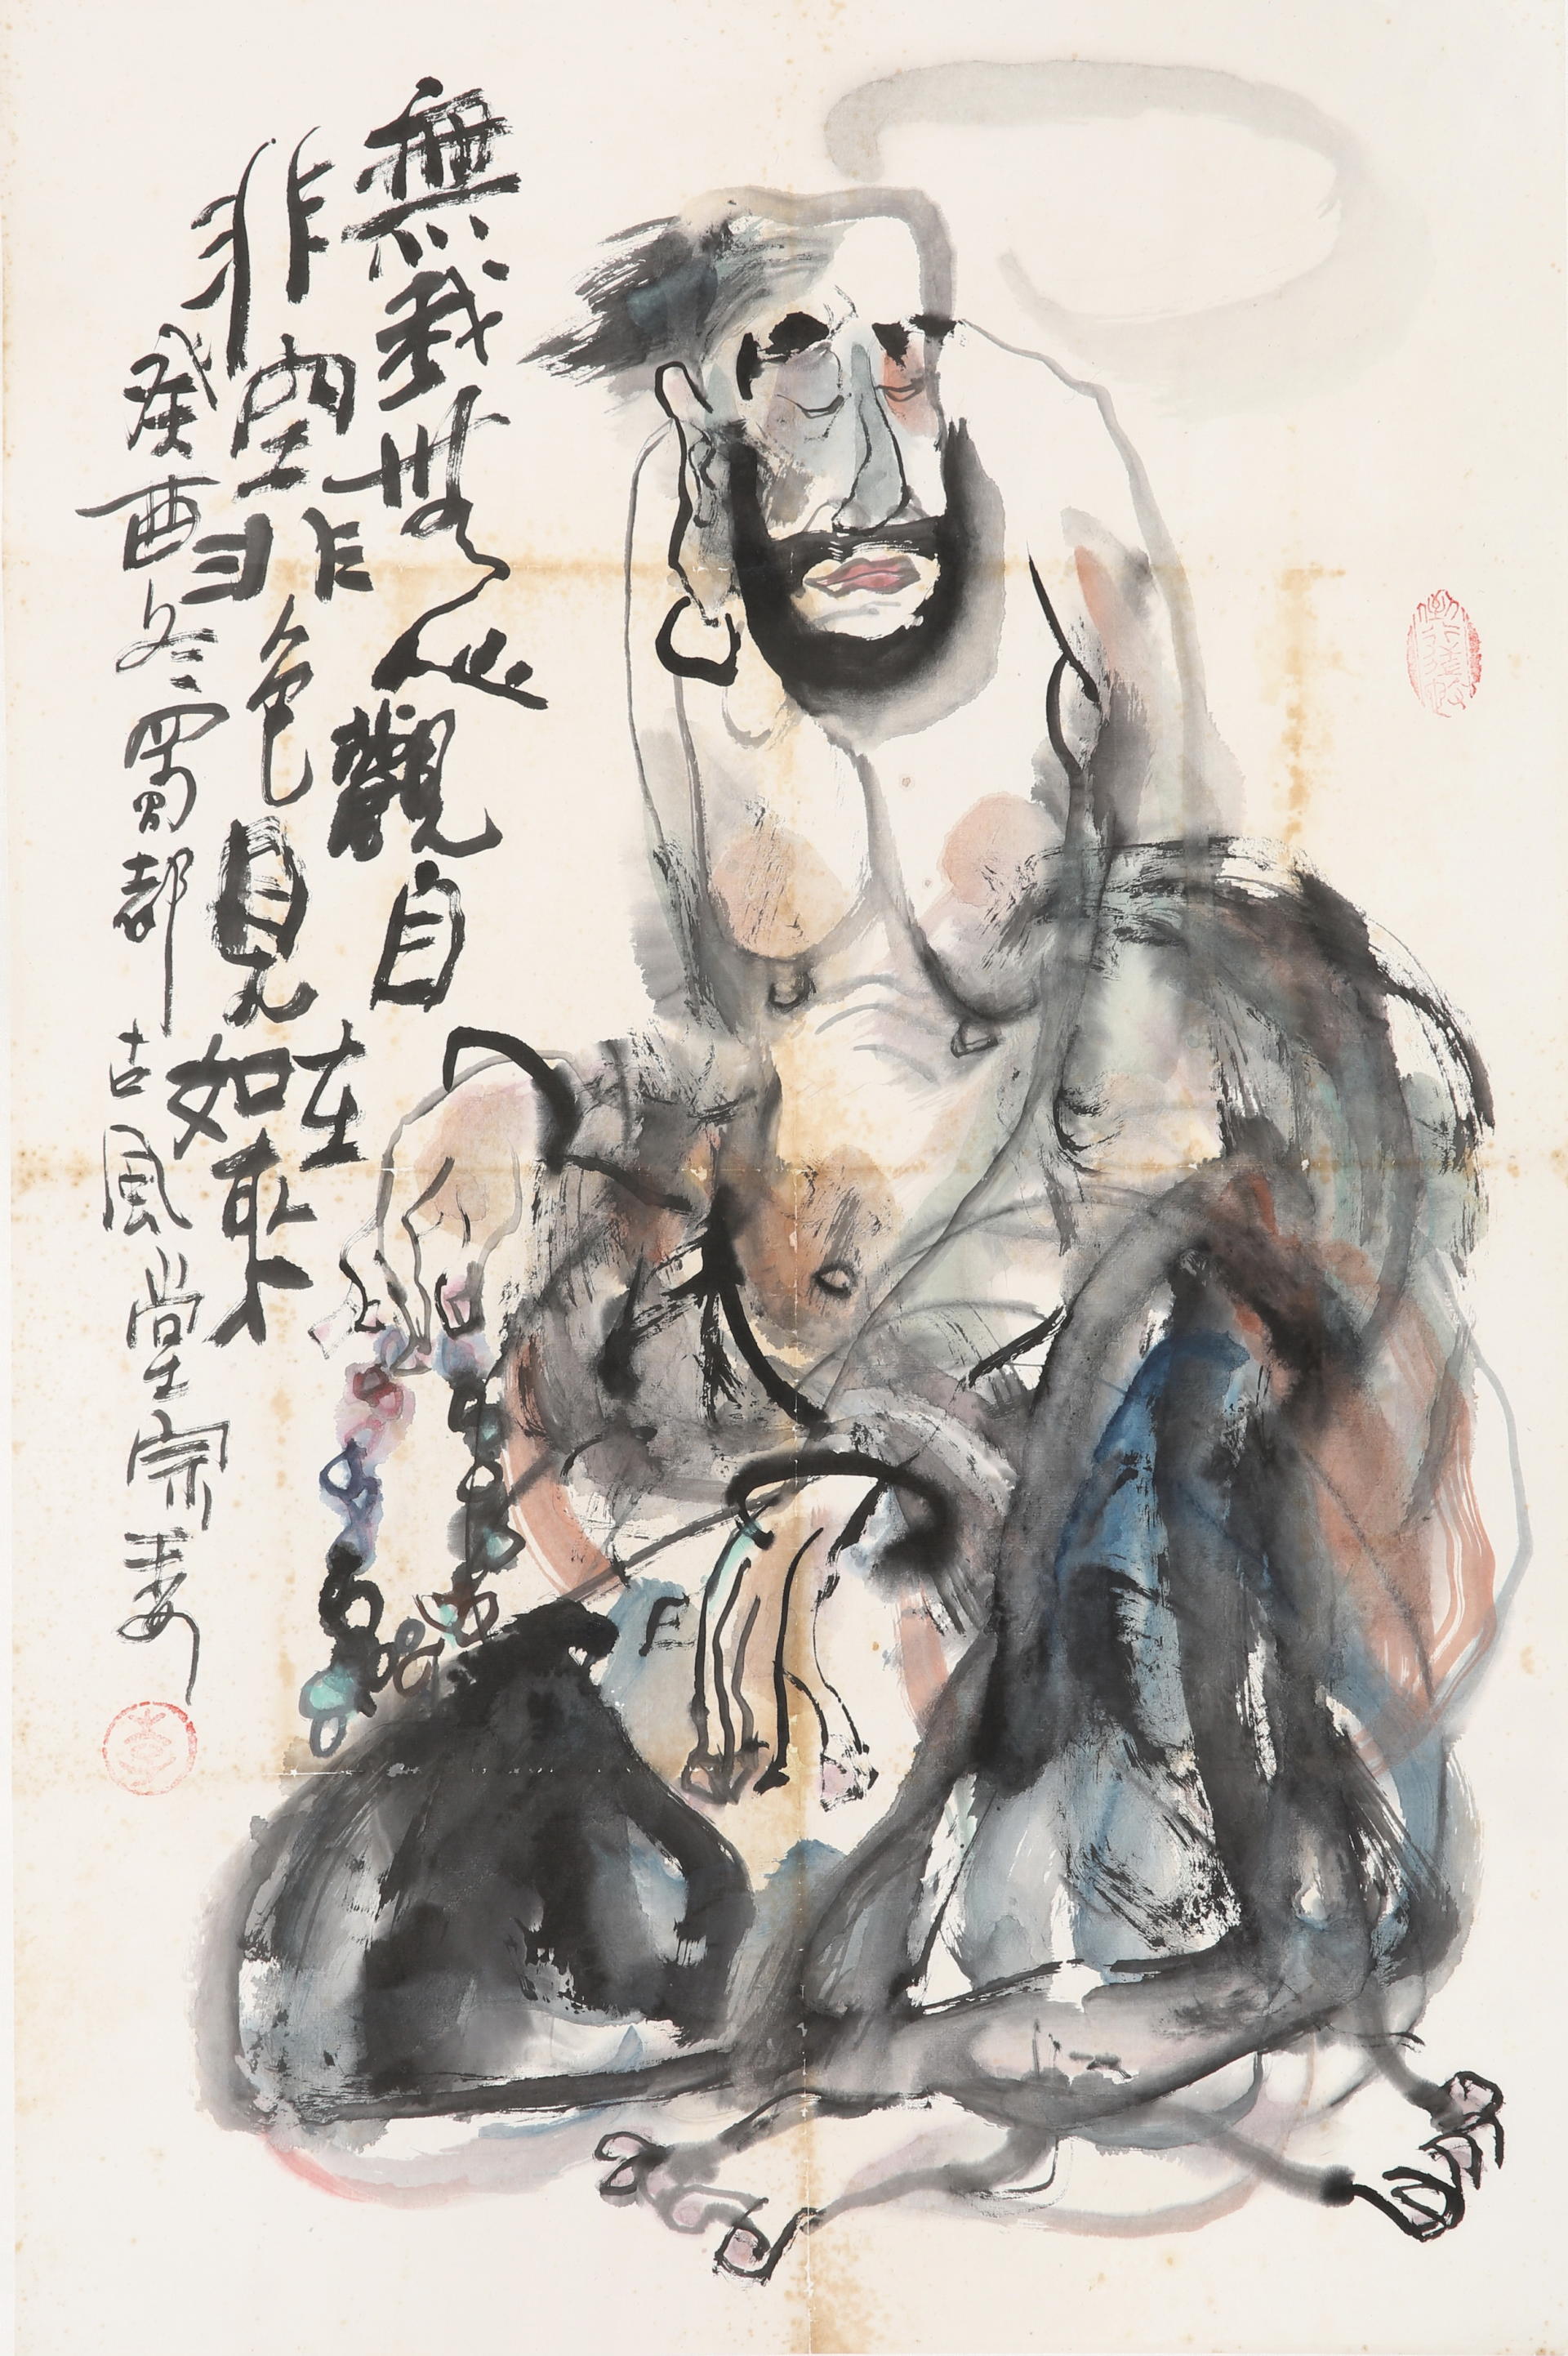 無我無心觀自在
非空非色見如來
癸酉冬蜀都古風堂宗